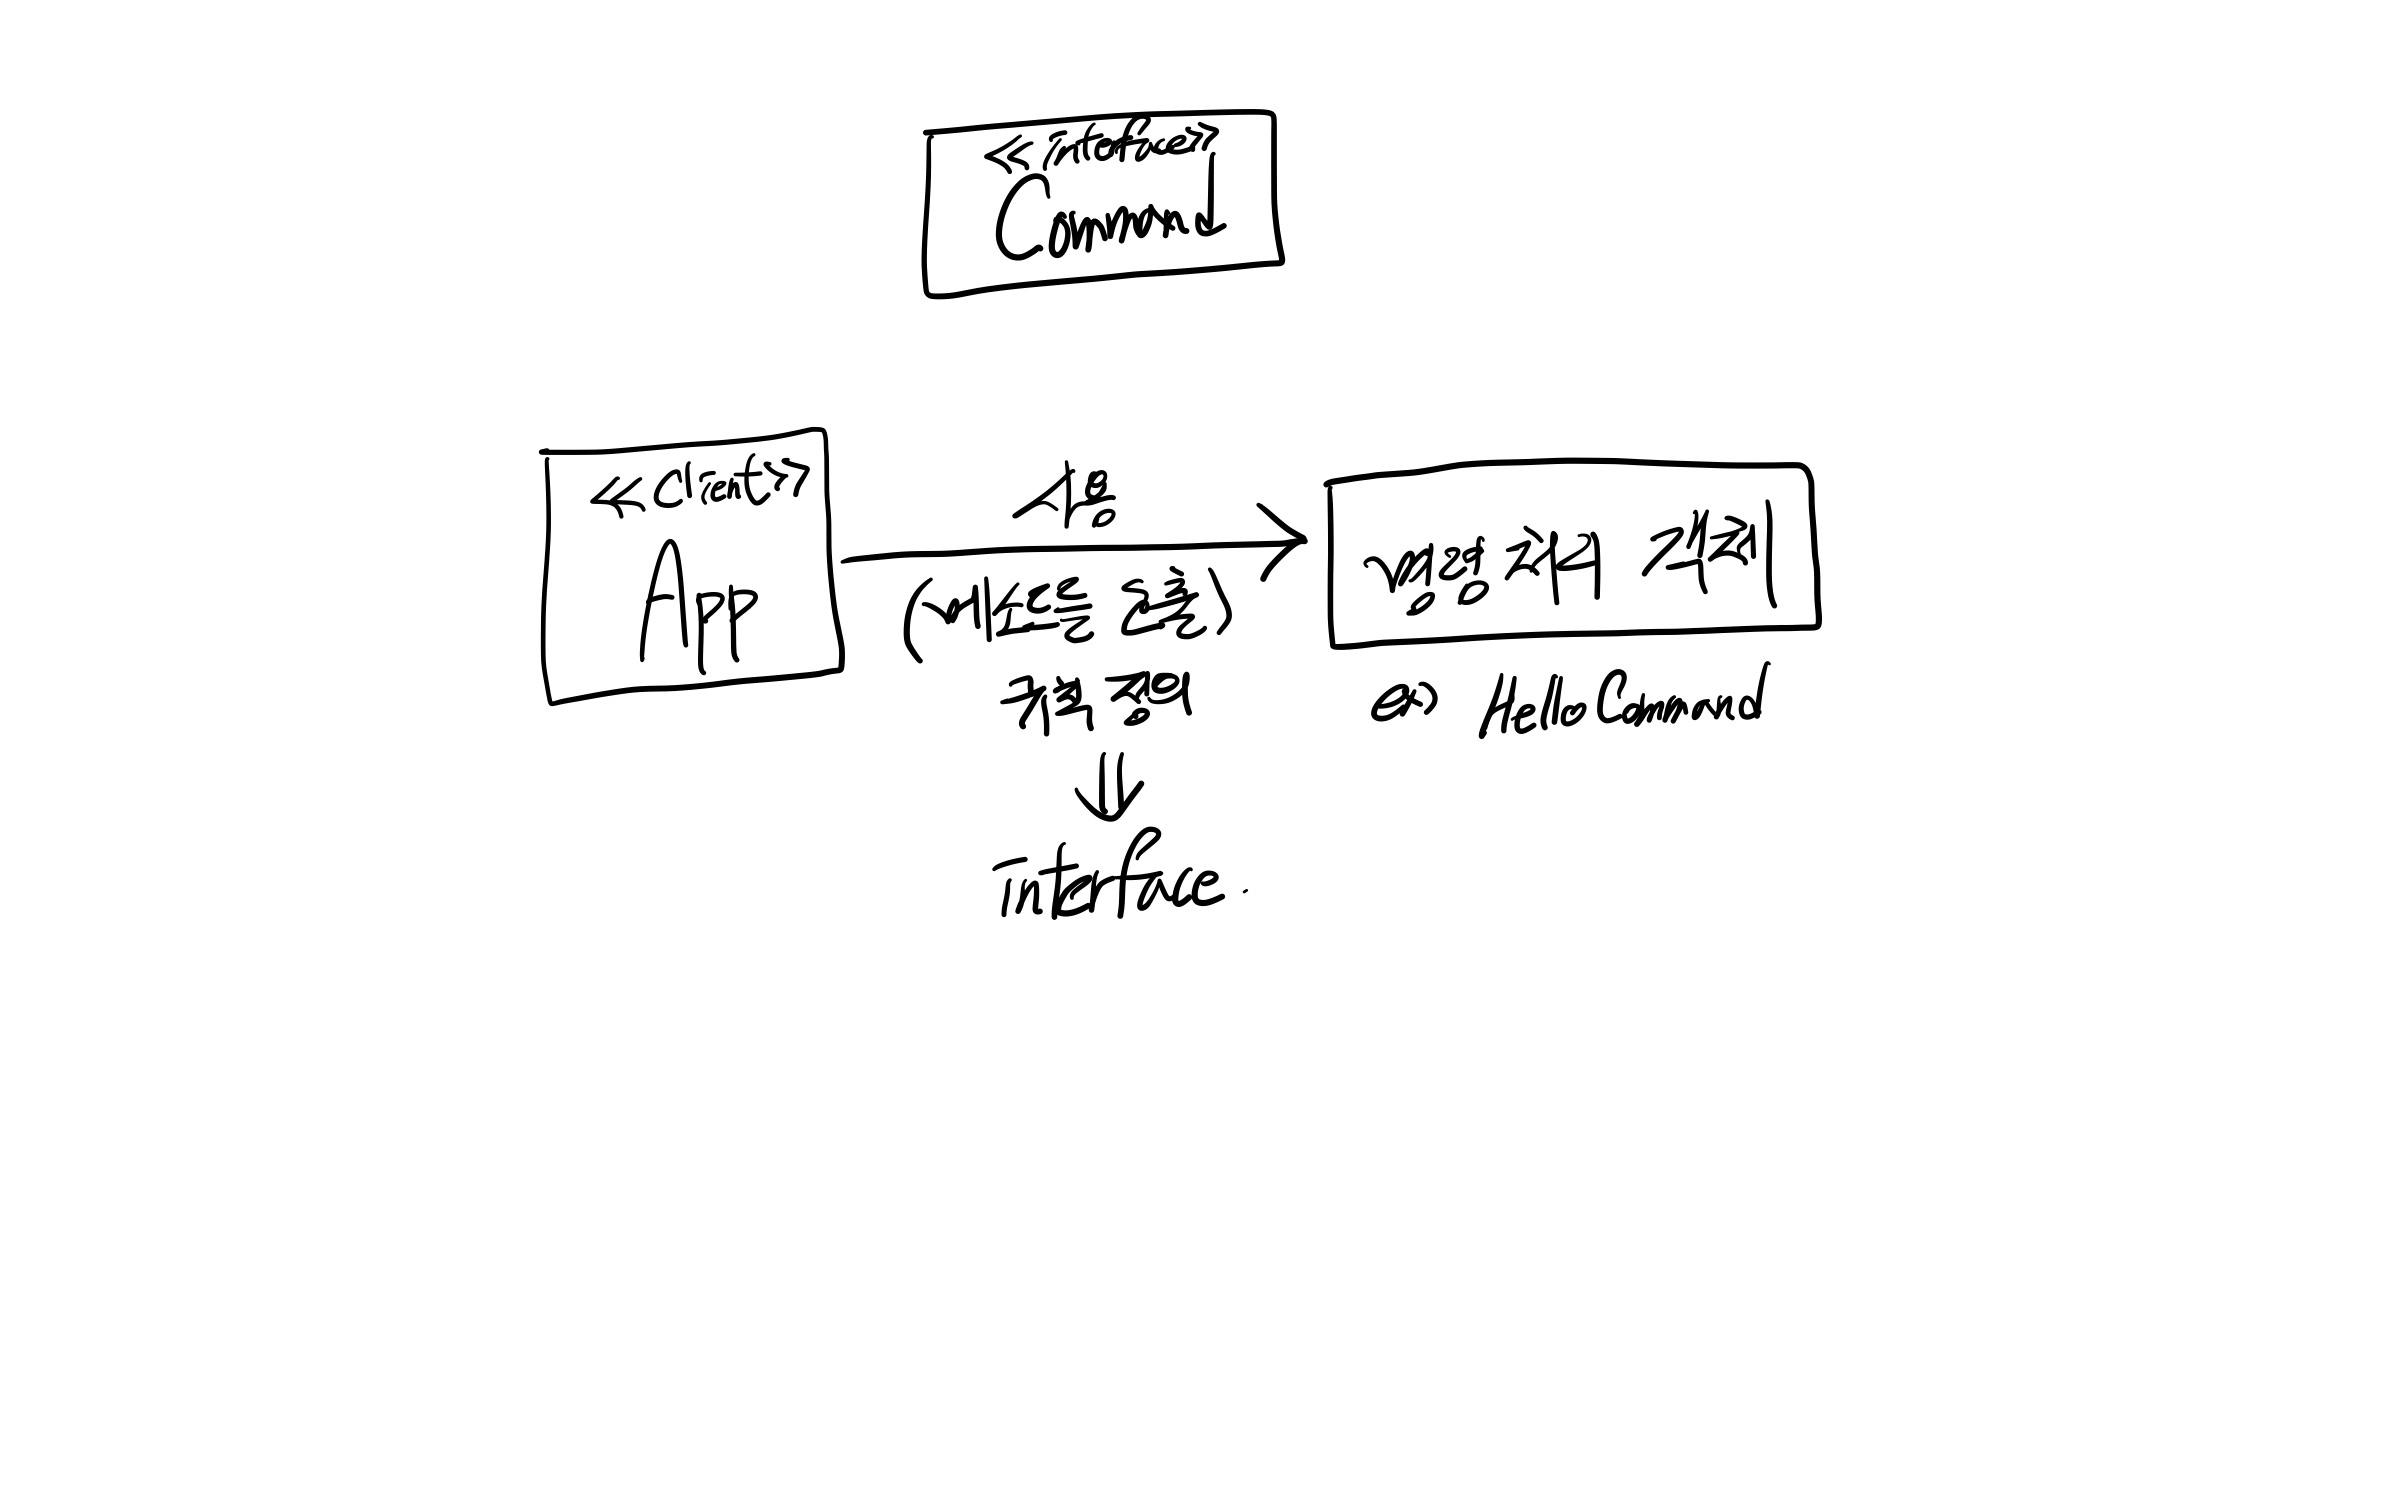 ≪interface≫
Command
≪client≫
App
사용
(메서드를 호출)
규칙 정의
⇓
interface.
명령 처리 객체
예) HelloCommand